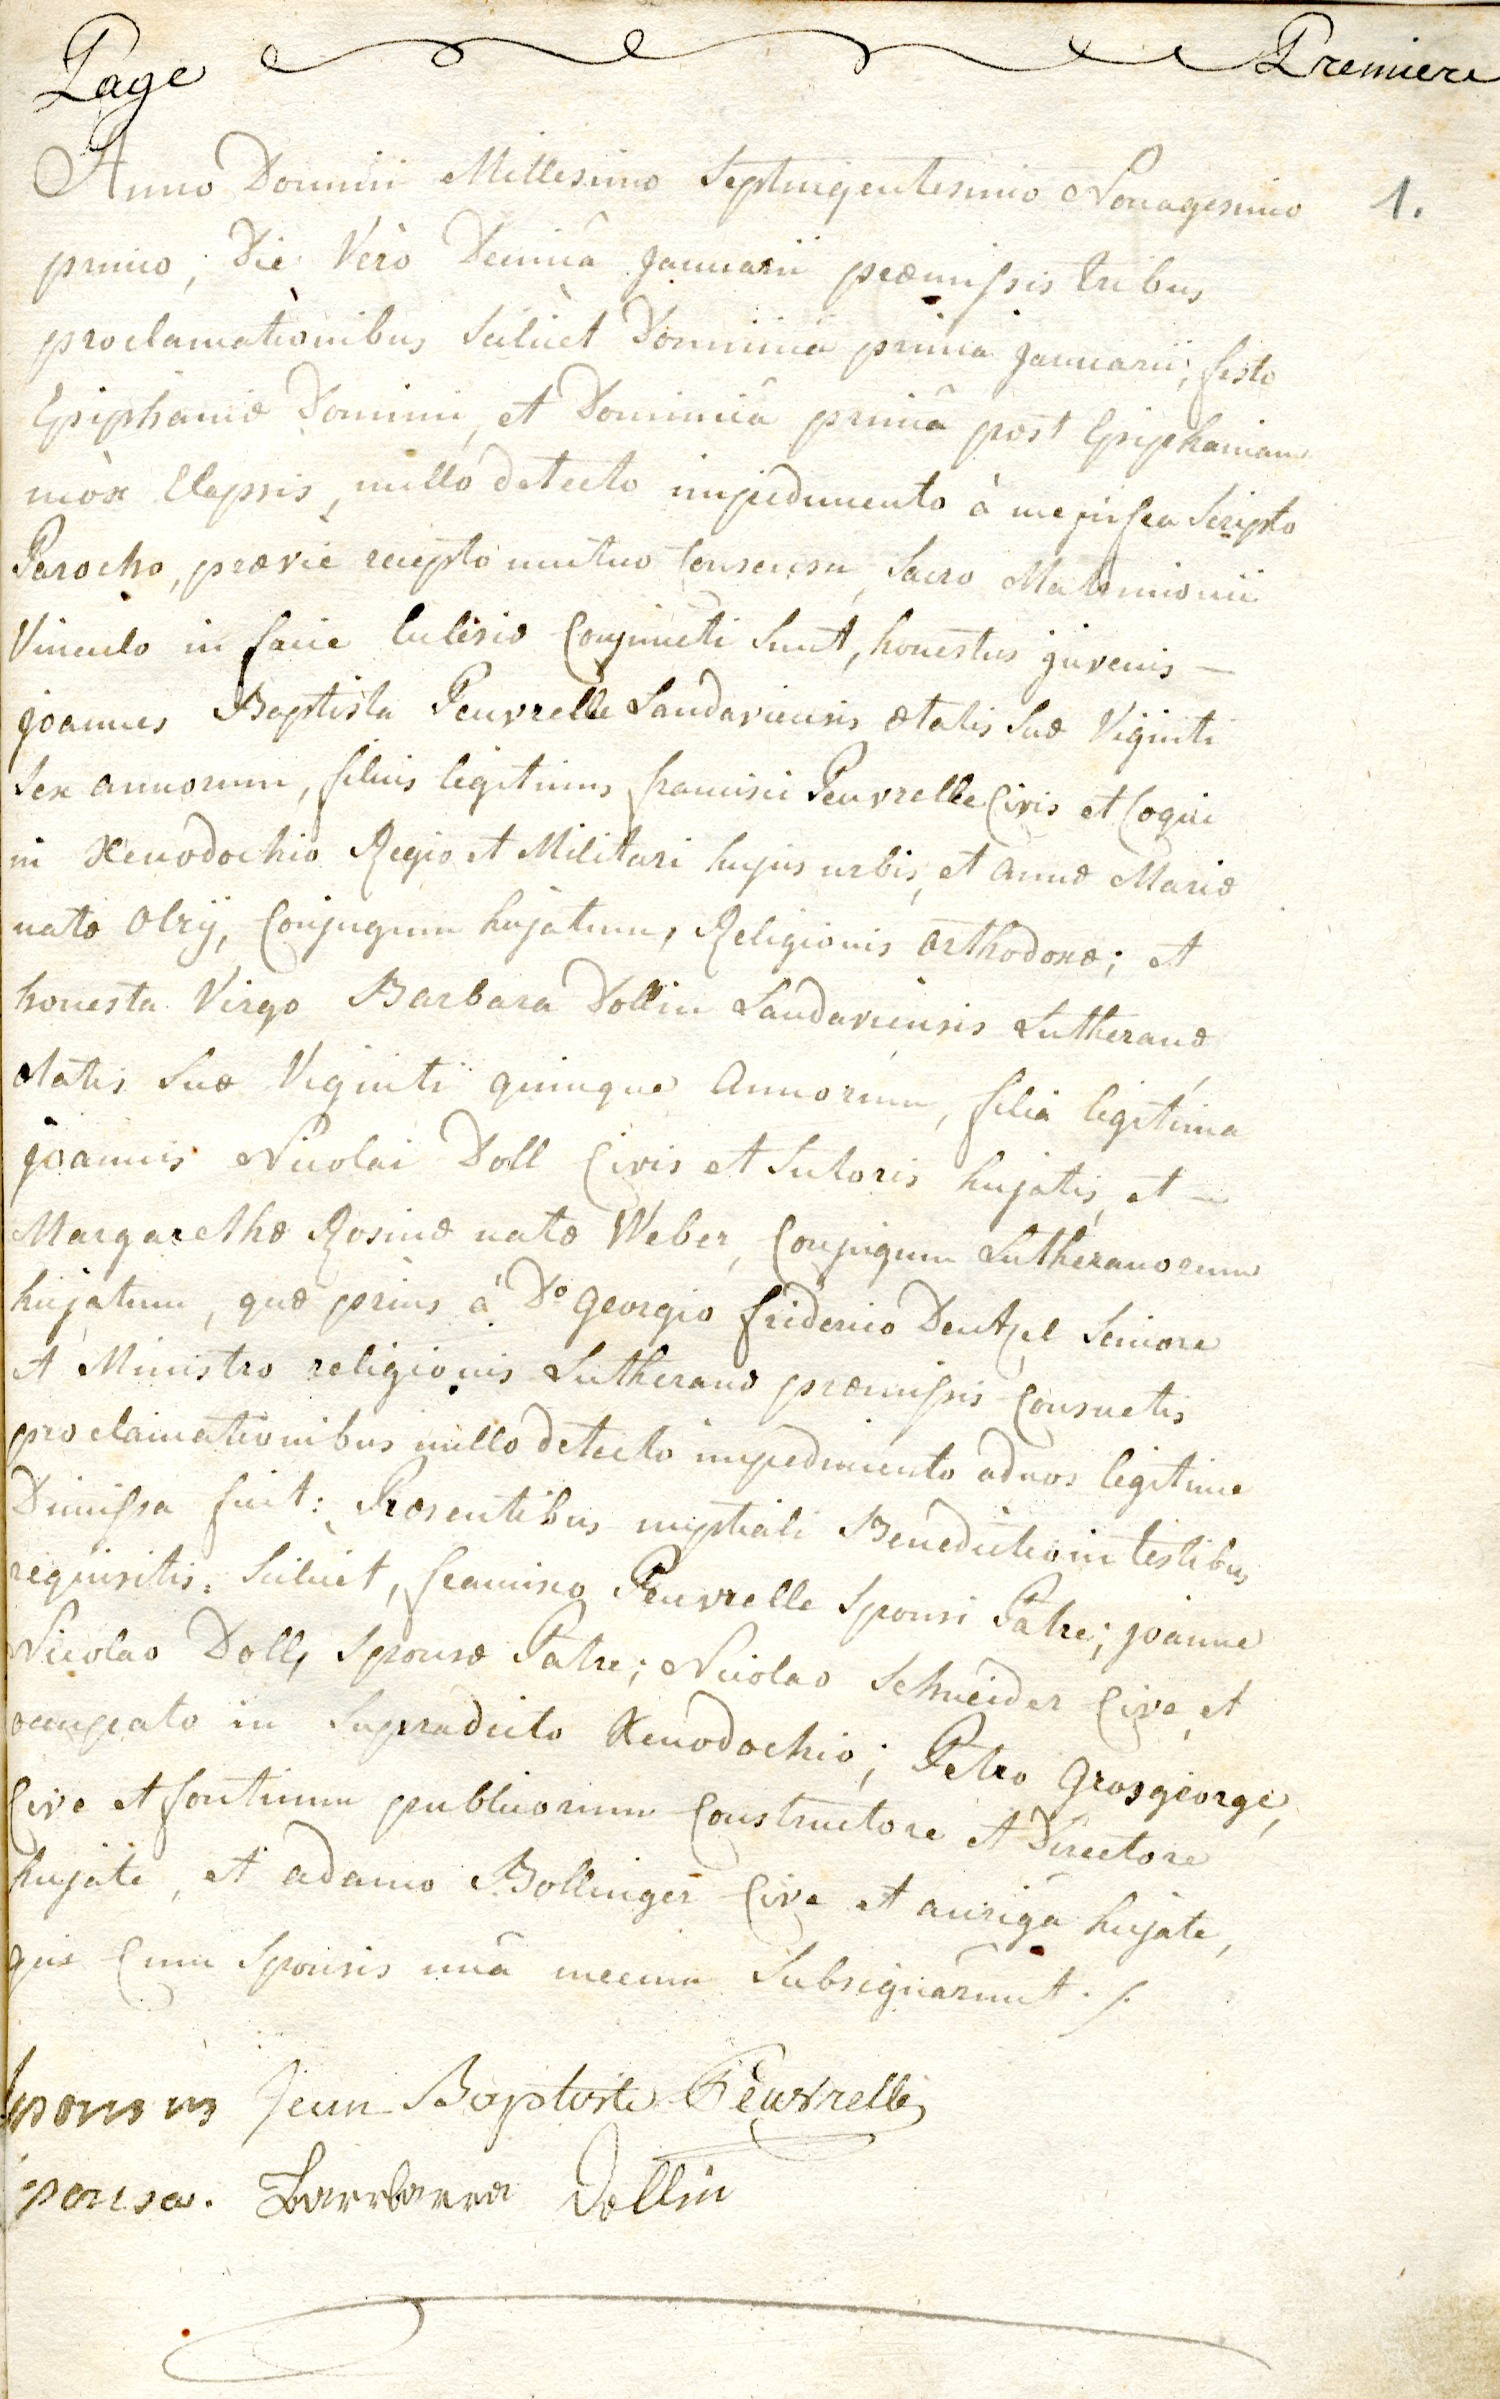 Page Premiere
Anno Domini Millesimo Septingentesimo Nonagesimo 1.
primo, Die Vero Decimâ Januarii præmissis tribus
proclamationibus Scilicet Dominicâ primâ Januarii, festo
Epiphaniæ Domini, et Dominicâ primâ post Epiphaniam
mòx Elapsis, nullo detecto impedimento à me infra Scripto
Parocho, prævie recepto mutuo Consensu, Sacro Matrimonii
Vinculo in facie Eclesiæ Conjuncti Sunt, honestus juvenis —
Joannes Baptista Peuvrelle Landaviensis ætatis Suæ Viginti
Sex annorum, filius legitimus francisci Peuvrelle Civis et Coqui
in Xenodochio Regio et Militari hujus urbis, et annæ Mariæ
natæ Olry, Conjugum hujatum, Religionis Orthodoxæ; et
honesta Virgo Barbara Dollin Landaviensis Lutherana
ætatis Suæ Viginti quinque Annorum, filia legitima
Joannis Nicolai Doll Civis et Sutoris hujatis, et —
Margarethæ Rosinæ natæ Weber, Conjugum Lutheranorum
hujatum, quæ prius â Do Georgio friderico Dentzel Seniore
et Ministro religionis Lutheranæ præmissis Consuetis
proclamationibus nullo detecto impedimento ad nos legitime
Dimissa fuit: Præsentibus nuptiali Benedictioni testibus
requisitis. Scilicet, francisco Peuvrelle Sponsi Patre; joanne
Nicolao Doll, Sponsæ Patre; Nicolao Schneider Cive, et
occupato in Supradicto Xenodochio; Petro Grosgeorge,
Cive et fontium publicorum Constructore et Directore
hujate, et adamo Bollinger Cive et aurigâ hujate,
qui Cum Sponsis unâ mecum Subsignârunt ./.
sponsus Jean Baptiste Peuvrelle
sponsa. Barrbarra Dollin